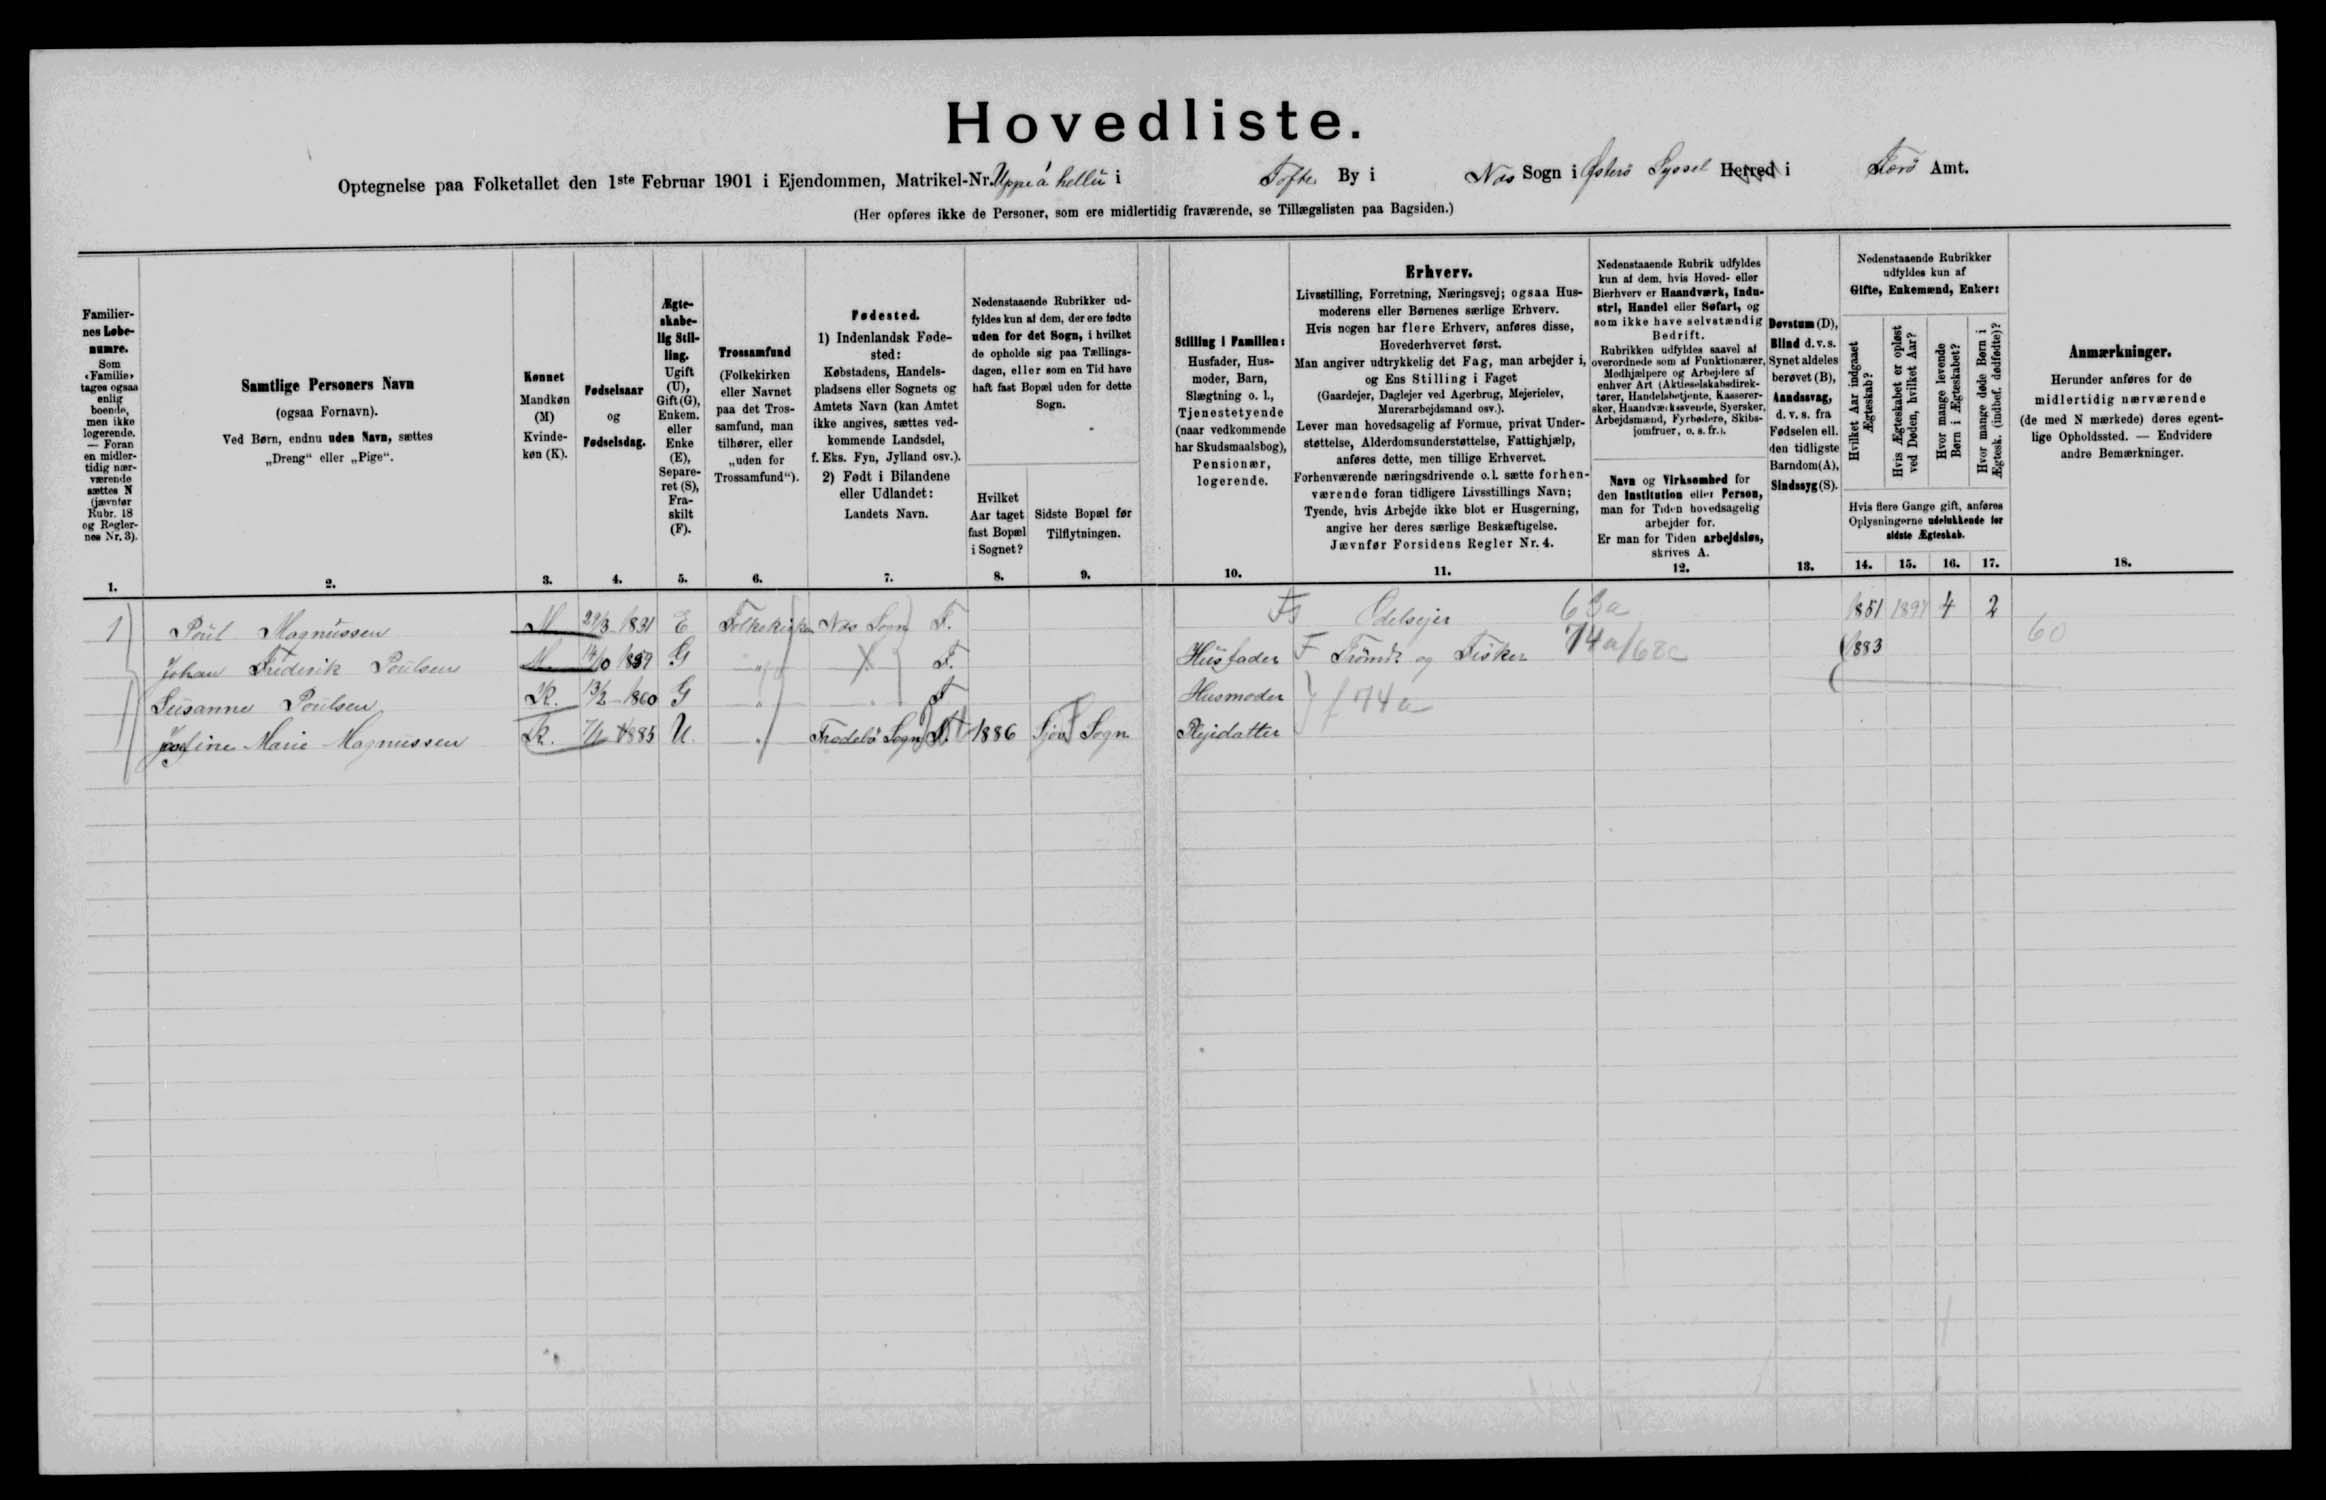 Hovedliste.
Optegnelse paa Folketallet den 1ste Februar 1901 i Ejendommen, Matrikel-Nr. Uppe á hellu i Tofte By i Nas Sogn i Østerö Syssel Herred i Færö Amt.
(Her opføres ikke de Personer, som ere midlertidig fraværende, se Tillægslisten paa Bagsiden.)
Familier-
nes Løbe-
numre.
Som
«Familie»
tages ogsaa
enlig
boende,
men ikke
logerende.
— Foran
en midler-
tidig nær-
værende
sættes N
(jævnfør
Rubr. 18
og Regler-
nes Nr. 3).
1.
Samtlige Personers Navn
(ogsaa Fornavn).
Ved Børn, endnu uden Navn, sættes
„Dreng“ eller „Pige“.
2.
Kønnet
Mandkøn
(M)
Kvinde-
køn (K).
3.
Fødselsaar
og
Fødselsdag.
4.
Ægte-
skabe-
lig Stil-
ling.
Ugift
(U),
Gift (G),
Enkem.
eller
Enke
(E),
Separe-
ret (S),
Fra-
skilt
(F).
5.
Trossamfund
(Folkekirken
eller Navnet
paa det Tros-
samfund, man
tilhører, eller
„uden for
Trossamfund“).
6.
Fødested.
1) IndenlandskFøde-
sted:
Købstadens, Handels-
pladsens eller Sognets og
Amtets Navn (kan Amtet
ikke angives, sættes ved-
kommende Landsdel,
f. Eks. Fyn, Jylland osv.).
2) Født i Bilandene
eller Udlandet:
Landets Navn.
7.
Nedenstaaende Rubrikker ud-
fyldes kun af dem, der ere fødte
uden for det Sogn, i hvilket
de opholde sig paa Tællings-
dagen, eller som en Tid have
haft fast Bopæl uden for dette
Sogn.
Hvilket
Aar taget
fast Bopæl
i Sognet?
8.
Sidste Bopæl før
Tilflytningen.
9.
Stilling i Familien:
Husfader, Hus-
moder, Barn,
Slægtning o. l.,
Tjenestetyende
(naar vedkommende
har Skudsmaalsbog),
Pensionær,
logerende.
10.
Erhverv.
Livsstilling, Forretning, Næringsvej; ogsaa Hus-
moderens eller Børnenes særlige Erhverv.
Hvis nogen har flere Erhverv, anføres disse,
Hovederhvervet først.
Man angiver udtrykkelig det Fag, man arbejder i,
og Ens Stilling i Faget
(Gaardejer, Daglejer ved Agerbrug, Mejerielev,
Murerarbejdsmand osv.).
Lever man hovedsagelig af Formue, privat Under-
støttelse, Alderdomsunderstøttelse, Fattighjælp,
anføres dette, men tillige Erhvervet.
Forhenværende næringsdrivende o. l. sætte forhen-
værende foran tidligere Livsstillings Navn;
Tyende, hvis Arbejde ikke blot er Husgerning,
angive her deres særlige Beskæftigelse.
Jævnfør Forsidens Regler Nr. 4.
11.
Nedenstaaende Rubrik udfyldes
kun af dem, hvis Hoved- eller
Bierhverv er Haandværk, Indu-
stri, Handel eller Søfart, og
som ikke have selvstændig
Bedrift.
Rubrikken udfyldes saavel af
overordnede som af Funktionærer,
Medhjælpere og Arbejdere af
enhver Art (Aktieselskabsdirek-
tører, Handelsbetjente, Kasserer-
sker, Haandværkssvende, Syersker,
Arbejdsmænd, Fyrbødere, Skibs-
jomfruer, o. s. fr.).
Navn og Virksomhed for
den Institution eller Person,
man for Tiden hovedsagelig
arbejder for.
Er man for Tiden arbejdsløs,
skrives A.
12.
Døvstum (D),
Blind d. v. s.
Synet aldeles
berøvet (B),
Aandssvag,
d. v. s. fra
Fødselen ell.
den tidligste
Barndom (A),
Sindssyg (S).
13.
Nedenstaaende Rubrikker
udfyldes kun af
Gifte, Enkemænd, Enker:
Hvilket Aar indgaaet
Ægteskab?
Hvis Ægteskabet er opløst
ved Døden, hvilket Aar?
Hvor mange levende
Børn i Ægteskabet?
Hvor mange døde Børn i
Ægtesk. (indbef. dødfødte)?
Hvis flere Gange gift, anføres
Oplysningerne udelukkende for
sidste Ægteskab.
14. 15. 16. 17.
Anmærkninger.
Herunder anføres for de
midlertidig nærværende
(de med N mærkede) deres egent-
lige Opholdssted. — Endvidere
andre Bemærkninger.
18.
1 Poul Magnussen M 29/3 1831 E Folkekirken Nas Sogn F. Odelsejer 63a 1851 1897 4 2
Johan Frederik Poulsen M. 14/10 1859 G " F. Husfader F Trömdr og Fisker 74a/68c 1883 60
Susanne Poulsen K. 13/2 1860 G " " F Husmoder 74a
Josefine Marie Magnussen K. 1885 U. " Frodebö Sogn F. 1886 Sjov Sogn Plejedatter